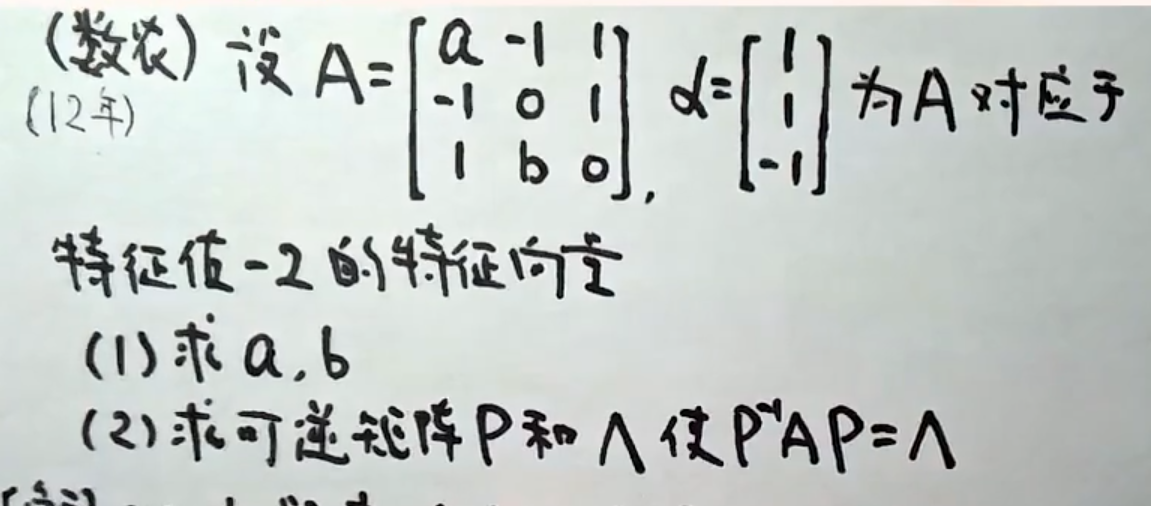 (数农) 设 A=[a -1 1; -1 0 1; 1 b 0], α=[1; 1; -1] 为A对应于
(12年)
特征值-2的特征向量
(1)求 a,b
(2)求可逆矩阵P和Λ使P⁻¹AP=Λ